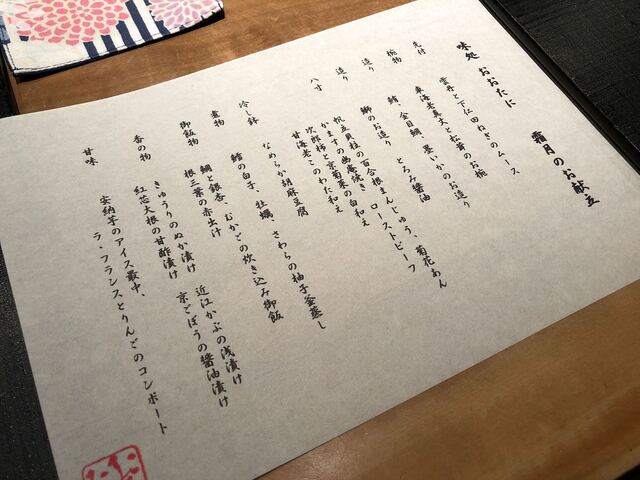 味処 おおたに
霜月のお献立
先付 雲丹と下仁田ねぎのムース
椀物 車海老真丈と松茸のお椀
造り 鮪、金目鯛、墨いかのお造り
とろみ醤油
造り 鰤のお造り
八寸 帆立貝柱の百合根まんじゅう、菊花あん
かますの幽庵焼き ローストビーフ
次郎柿と京菊菜の白和え
甘海老このわた和え
冷し鉢 なめらか胡麻豆腐
煮物 鱈の白子、牡蠣、さわらの柚子釜蒸し
御飯物 鯛と銀杏、むかごの炊き込み御飯
根三葉の赤出汁
香の物 きゅうりのぬか漬け 近江かぶの浅漬け
紅芯大根の甘酢漬け 京ごぼうの醤油漬け
甘味 安納芋のアイス最中、
ラ・フランスとりんごのコンポート